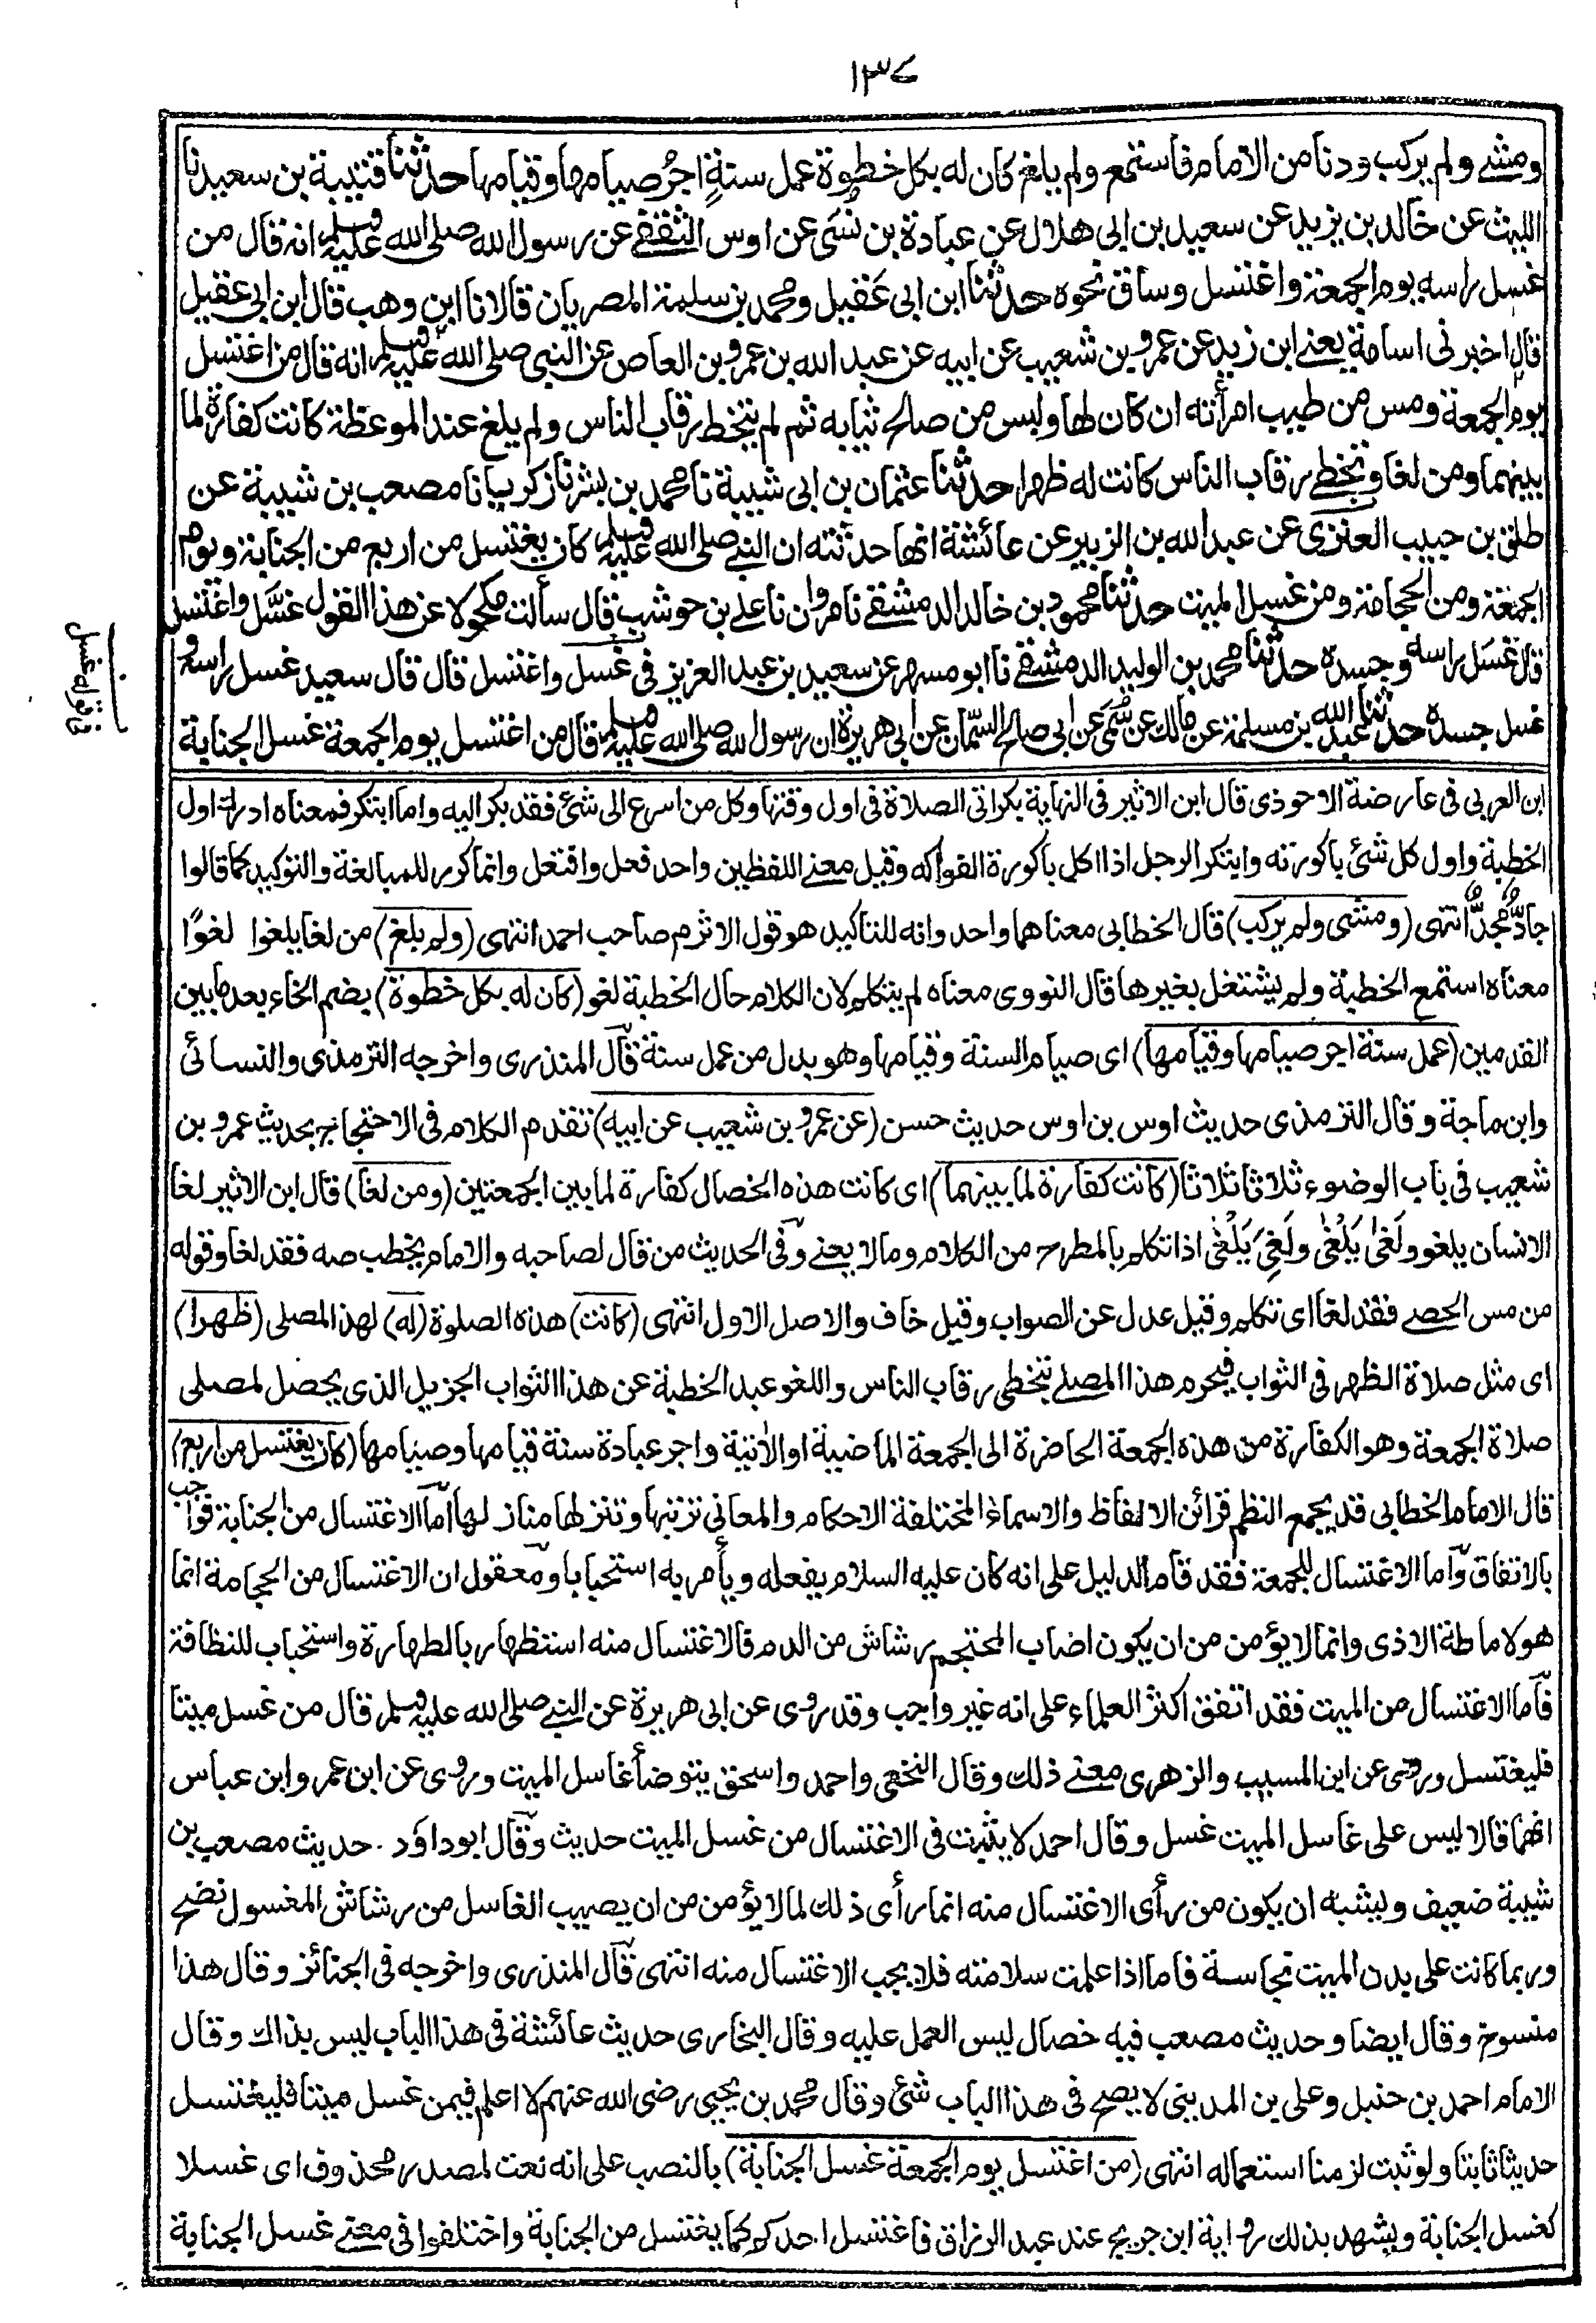 ١٣٧
ومشى ولم يركب ودنا من الامام فاستمع ولم يلغ كان له بكل خطوة عمل سنةٍ اجرُ صيامها وقيامها حدثنا قتيبة بن سعيد نا
الليث عن خالد بن يزيد عن سعيد بن ابى هلال عن عبادة بن نُسَى عن اوس الثقفى عن رسول الله صلى الله عليه وسلم انه قال من
غسل راسه يوم الجمعة واغتسل وساق نحوه حدثنا ابن ابى عَقيل ومحمد بن سلمة المصريان قالا نا ابن وهب قال ابن ابى عقيل
قال اخبرنى اسامة يعنى ابن زيد عن عمرو بن شعيب عن ابيه عن عبد الله بن عمرو بن العاص عن النبى صلى الله عليه وسلم انه قال من اغتسل
يوم الجمعة ومس من طيب امرأته ان كان لها ولبس من صالح ثيابه ثم لم يتخط رقاب الناس ولم يلغ عند الموعظة كانت كفارة لما
بينهما ومن لغا وتخطى رقاب الناس كانت له ظهرا حدثنا عثمان بن ابى شيبة نا محمد بن بشر نا زكريا نا مصعب بن شيبة عن
طلق بن حبيب العنزى عن عبد الله بن الزبير عن عائشة انها حدثته ان النبى صلى الله عليه وسلم كان يغتسل من اربع من الجنابة ويوم
الجمعة ومن الحجامة ومن غسل الميت حدثنا محمود بن خالد الدمشقى نا مروان نا على بن حوشب قال سألت مكحولا عن هذا القول غسَّل واغتسل
قال غسَل راسه وجسده حدثنا محمد بن الوليد الدمشقى نا ابو مسهر عن سعيد بن عبد العزيز فى غسل واغتسل قال قال سعيد غسل راسه و
غسل جسده حدثنا عبد الله بن مسلمة عن مالك عن سُمَى عن ابى صالح السمّان عن ابى هريرة ان رسول الله صلى الله عليه وسلم قال من اغتسل يوم الجمعة غسل الجنابة
ابن العربى فى عارضة الاحوذى قال ابن الاثير فى النهاية بكر اتى الصلاة فى اول وقتها وكل من اسرع الى شئ فقد بكر اليه واما ابتكر فمعناه ادرك اول
الخطبة واول كل شئ باكورته وابتكر الرجل اذا اكل باكورة الفواكه وقيل معنى اللفظين واحد فعل وافتعل وانما كرر للمبالغة والتوكيد كما قالوا
جادٌّ مُجدٌّ انتهى (ومشى ولم يركب) قال الخطابى معناهما واحد وانه للتاكيد هو قول الاثرم صاحب احمد انتهى (ولم يلغ) من لغا يلغوا لغوًا
معناه استمع الخطبة ولم يشتغل بغيرها قال النووى معناه لم يتكلم لان الكلام حال الخطبة لغو (كان له بكل خطوة) بضم الخاء بعد ما بين
القدمين (عمل سنة اجر صيامها وقيامها) اى صيام السنة وقيامها وهو بدل من عمل سنة قال المنذرى واخرجه الترمذى والنسائى
وابن ماجة وقال الترمذى حديث اوس بن اوس حديث حسن (عن عمرو بن شعيب عن ابيه) تقدم الكلام فى الاحتجاج بحديث عمرو بن
شعيب فى باب الوضوء ثلاثا ثلاثا (كانت كفارة لما بينهما) اى كانت هذه الخصال كفارة لما بين الجمعتين (ومن لغا) قال ابن الاثير لغا
الانسان يلغو ولَغىٰ يَلْغىٰ ولَغِىَ يَلْغىٰ اذا تكلم بالمطرح من الكلام وما لا يعنى وفى الحديث من قال لصاحبه والامام يخطب صه فقد لغا وقوله
من مس الحصى فقد لغا اى تكلم وقيل عدل عن الصواب وقيل خاف والاصل الاول انتهى (كانت) هذه الصلوة (له) لهذا المصلى (ظهرا)
اى مثل صلاة الظهر فى الثواب فيحرم هذا المصلى بتخطى رقاب الناس واللغو عبد الخطبة عن هذا الثواب الجزيل الذى يحصل لمصلى
صلاة الجمعة وهو الكفارة من هذه الجمعة الحاضرة الى الجمعة الماضية او الاٰتية واجر عبادة سنة قيامها وصيامها (كان يغتسل من اربع)
قال الامام الخطابى قد يجمع النظم قرائن الالفاظ والاسماء المختلفة الاحكام والمعانى ترتبها وتنزلها منازلها اما الاغتسال من الجنابة فواجب
بالاتفاق واما الاغتسال للجمعة فقد قام الدليل على انه كان عليه السلام يفعله ويأمر به استحبابا ومعقول ان الاغتسال من الحجامة انما
هو لاماطة الاذى وانما لا يؤمن من ان يكون اضاب المحتجم رشاش من الدم قالاغتسال منه استظهار بالطهارة واستحباب للنظافة
فاما الاغتسال من الميت فقد اتفق اكثر العلماء على انه غير واجب وقد روى عن ابى هريرة عن النبى صلى الله عليه وسلم قال من غسل ميتا
فليغتسل وروى عن ابن المسيب والزهرى معنى ذلك وقال النخعى واحمد واسحق يتوضأ غاسل الميت وروى عن ابن عمر وابن عباس
انهما قالا ليس على غاسل الميت غسل وقال احمد لا يثبت فى الاغتسال من غسل الميت حديث وقال ابو داؤد . حديث مصعب بن
شيبة ضعيف ويشبه ان يكون من رأى الاغتسال منه انما رأى ذلك لما لا يؤمن من ان يصيب الغاسل من رشاش المغسول نضح
وربما كانت على بدن الميت نجاسة فاما اذا علمت سلامته فلا يجب الاغتسال منه انتهى قال المنذرى واخرجه فى الجنائز وقال هذا
منسوخ وقال ايضا وحديث مصعب فيه خصال ليس العمل عليه وقال البخارى حديث عائشة فى هذا الباب ليس بذاك وقال
الامام احمد بن حنبل وعلى بن المدينى لا يصح فى هذا الباب شئ وقال محمد بن يحيى رضى الله عنهم لا اعلم فيمن غسل ميتا فليغتسل
حديثا ثابتا ولو ثبت لزمنا استعماله انتهى (من اغتسل يوم الجمعة غسل الجنابة) بالنصب على انه نعت لمصدر محذوف اى غسلا
كغسل الجنابة ويشهد بذلك رواية ابن جريج عند عبد الرزاق فاغتسل احدكم كما يغتسل من الجنابة واختلفوا فى معنى غسل الجنابة